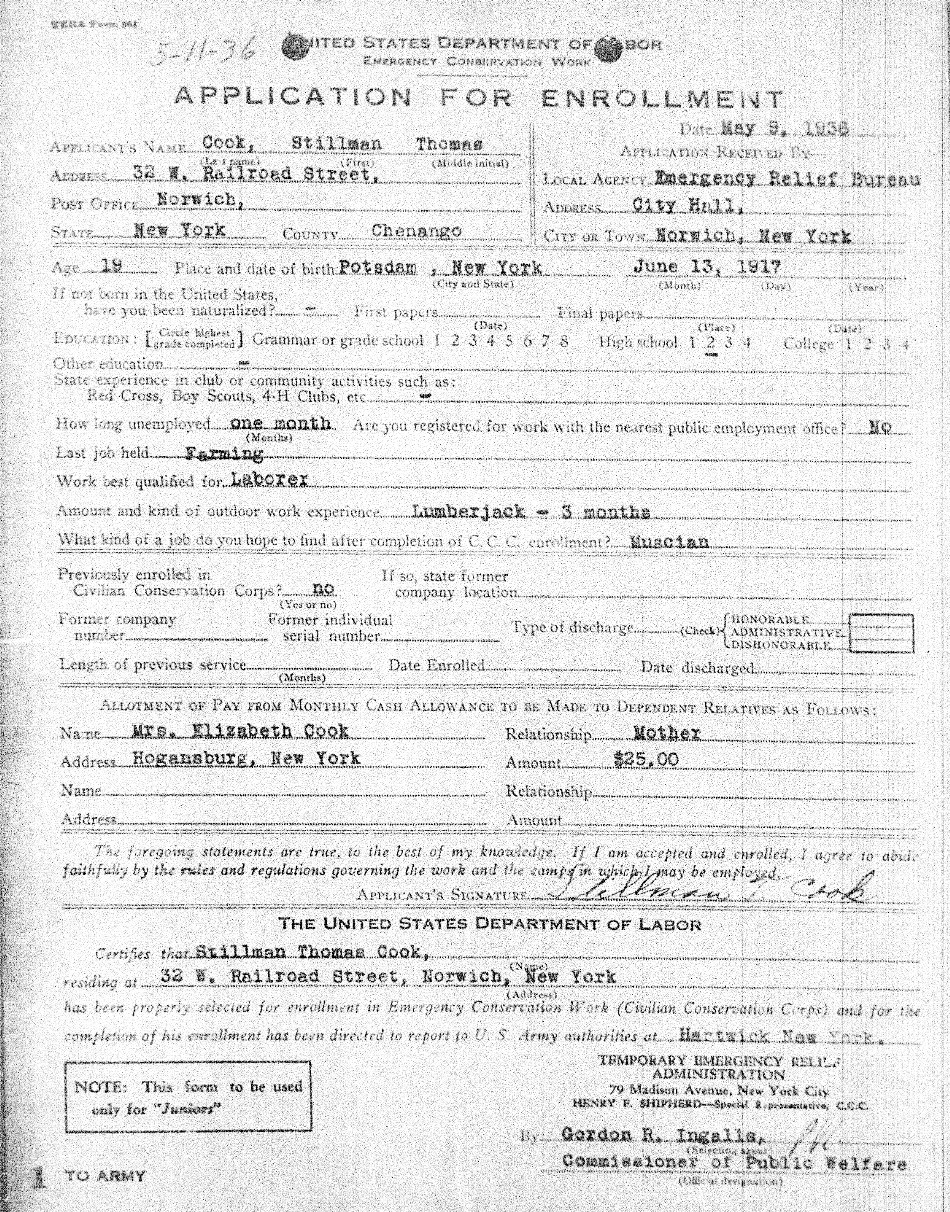 TERA Form 361
5-11-36
UNITED STATES DEPARTMENT OF LABOR
EMERGENCY CONSERVATION WORK
APPLICATION FOR ENROLLMENT
Date May 9, 1936
APPLICANT'S NAME Cook, Stillman Thomas
(Last name) (First) (Middle initial)
APPLICATION RECEIVED BY
ADDRESS 32 W. Railroad Street,
LOCAL AGENCY Emergency Relief Bureau
POST OFFICE Norwich,
ADDRESS City Hall,
STATE New York COUNTY Chenango
CITY OR TOWN Norwich, New York
Age 19 Place and date of birth Potsdam , New York June 13, 1917
(City and State) (Month) (Day) (Year)
If not born in the United States,
have you been naturalized? - First papers Final papers
(Date) (Place) (Date)
EDUCATION: [Circle highest grade completed] Grammar or grade school 1 2 3 4 5 6 7 8 High school 1 2 3 4 College 1 2 3 4
Other education -
State experience in club or community activities such as:
Red Cross, Boy Scouts, 4-H Clubs, etc -
How long unemployed one month Are you registered for work with the nearest public employment office? No
(Months)
Last job held Farming
Work best qualified for Laborer
Amount and kind of outdoor work experience Lumberjack - 3 months
What kind of a job do you hope to find after completion of C. C. C. enrollment? Muscian
Previously enrolled in
Civilian Conservation Corps? no
(Yes or no)
If so, state former
company location
Former company
number
Former individual
serial number
Type of discharge (Check) { HONORABLE
ADMINISTRATIVE
DISHONORABLE
Length of previous service Date Enrolled Date discharged
(Months)
ALLOTMENT OF PAY FROM MONTHLY CASH ALLOWANCE TO BE MADE TO DEPENDENT RELATIVES AS FOLLOWS:
Name Mrs. Elizabeth Cook Relationship Mother
Address Hogansburg, New York Amount $25.00
Name Relationship
Address Amount
The foregoing statements are true, to the best of my knowledge. If I am accepted and enrolled, I agree to abide
faithfully by the rules and regulations governing the work and the camps in which I may be employed.
APPLICANT'S SIGNATURE Stillman T. Cook
THE UNITED STATES DEPARTMENT OF LABOR
Certifies that Stillman Thomas Cook,
(Name)
residing at 32 W. Railroad Street, Norwich, New York
(Address)
has been properly selected for enrollment in Emergency Conservation Work (Civilian Conservation Corps) and for the
completion of his enrollment has been directed to report to U. S. Army authorities at Hartwick New York.
TEMPORARY EMERGENCY RELIEF
ADMINISTRATION
79 Madison Avenue, New York City
HENRY F. SHIPHERD—Special Representative, C.C.C.
NOTE: This form to be used
only for "Juniors"
By Gordon R. Ingalls,
(Selecting agent)
Commissioner of Public Welfare
(Official designation)
1 TO ARMY